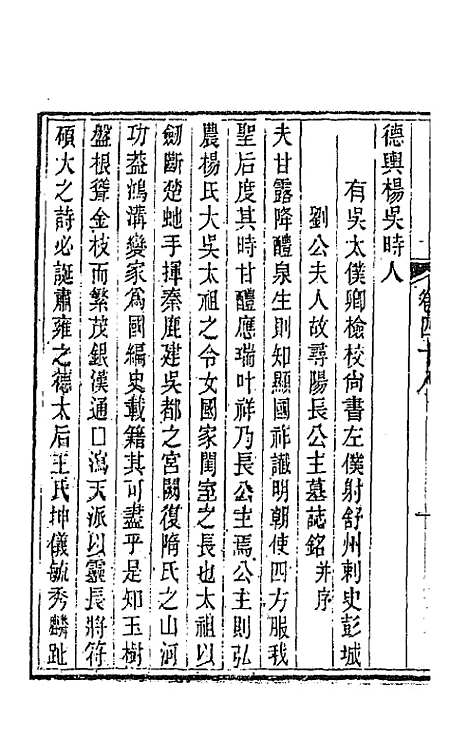 德輿楊吳時人
有吳太僕卿檢校尚書左僕射舒州刺史彭城
劉公夫人故尋陽長公主墓誌銘并序
夫甘露降醴泉生則知顯國祚讖明朝使四方服我
聖后度其時甘醴應瑞叶祥乃長公主焉公主則弘
農楊氏大吳太祖之令女國家閨室之長也太祖以
劒斷楚虵手揮秦鹿建吳都之宮闕復隋氏之山河
功葢鴻溝變家爲國編史載籍其可盡乎是知玉樹
盤根聳金枝而繁茂銀漢通口瀉天派以靈長將符
碩大之詩必誕肅雍之德太后王氏坤儀毓秀麟趾
卷四十八
一